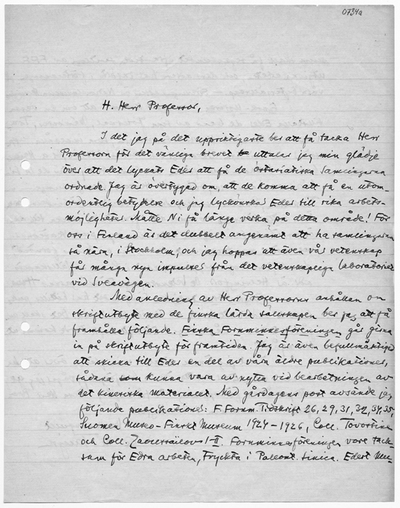 0734a
H. Herr Professor,
I det jag på det uppriktigaste ber att få tacka Herr
Professorn för det vänliga brevet uttalar jag min glädje
över att det lyckats Eder att få de ostasiatiska samlingarna
ordnade. Jag är övertygad om, att de komma att få en utom-
ordentlig betydelse och jag lyckönskar Eder till rika arbets-
möjligheter. Måtte Ni få länge verka på detta område! För
oss i Finland är det dubbelt angenämt att ha samlingarna
så nära, i Stockholm, och jag hoppas att även vår vetenskap
får många nya impulser från det vetenskapliga laboratoriet
vid Sveavägen.
Med anledning av Herr Professorns anhållan om
skriftutbyte med de finska lärda sällskapen ber jag att få
framhålla följande. Finska Fornminnesföreningen går gärna
in på skriftutbyte för framtiden. Jag är även befullmäktigad
att skicka till Eder en del av våra äldre publikationer,
sådana som kunna vara av nytta vid bearbetningen av
det kinesiska materialet. Med gårdagens post avsände jag
följande publikationer: F. Fornm. Tidskrift 26, 29, 31, 32, 34, 35,
Suomen Museo-Finskt Museum 1924-1926, Coll. Tovostine
och Coll. Zaoussaïlov I-II. Fornminnesföreningen vore tack-
sam för Edra arbeten, tryckta i Palaeont. Sinica. Edert